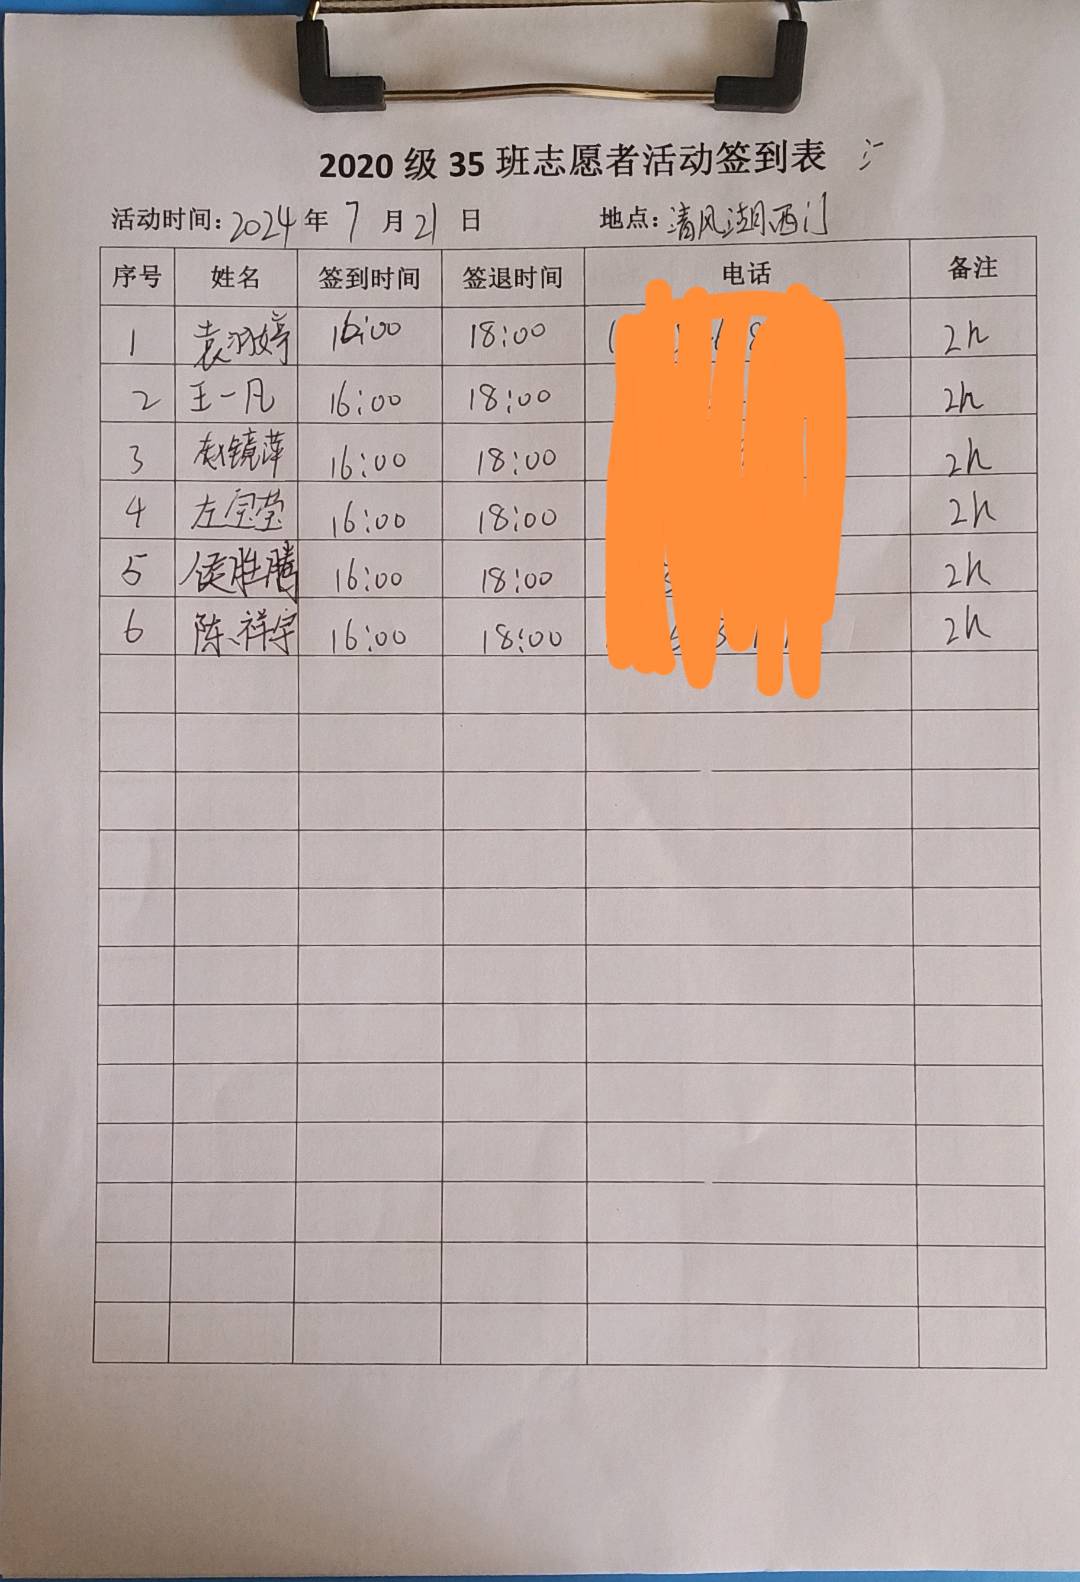 2020 级 35 班志愿者活动签到表 氵
活动时间: 2024 年 7 月 21 日 地点: 清风湖西门
序号 姓名 签到时间 签退时间 电话 备注
1 袁羽婷 16:00 18:00 2h
2 王一凡 16:00 18:00 2h
3 赵镜萍 16:00 18:00 2h
4 左宝莹 16:00 18:00 2h
5 侯胜腾 16:00 18:00 2h
6 陈祥宇 16:00 18:00 2h